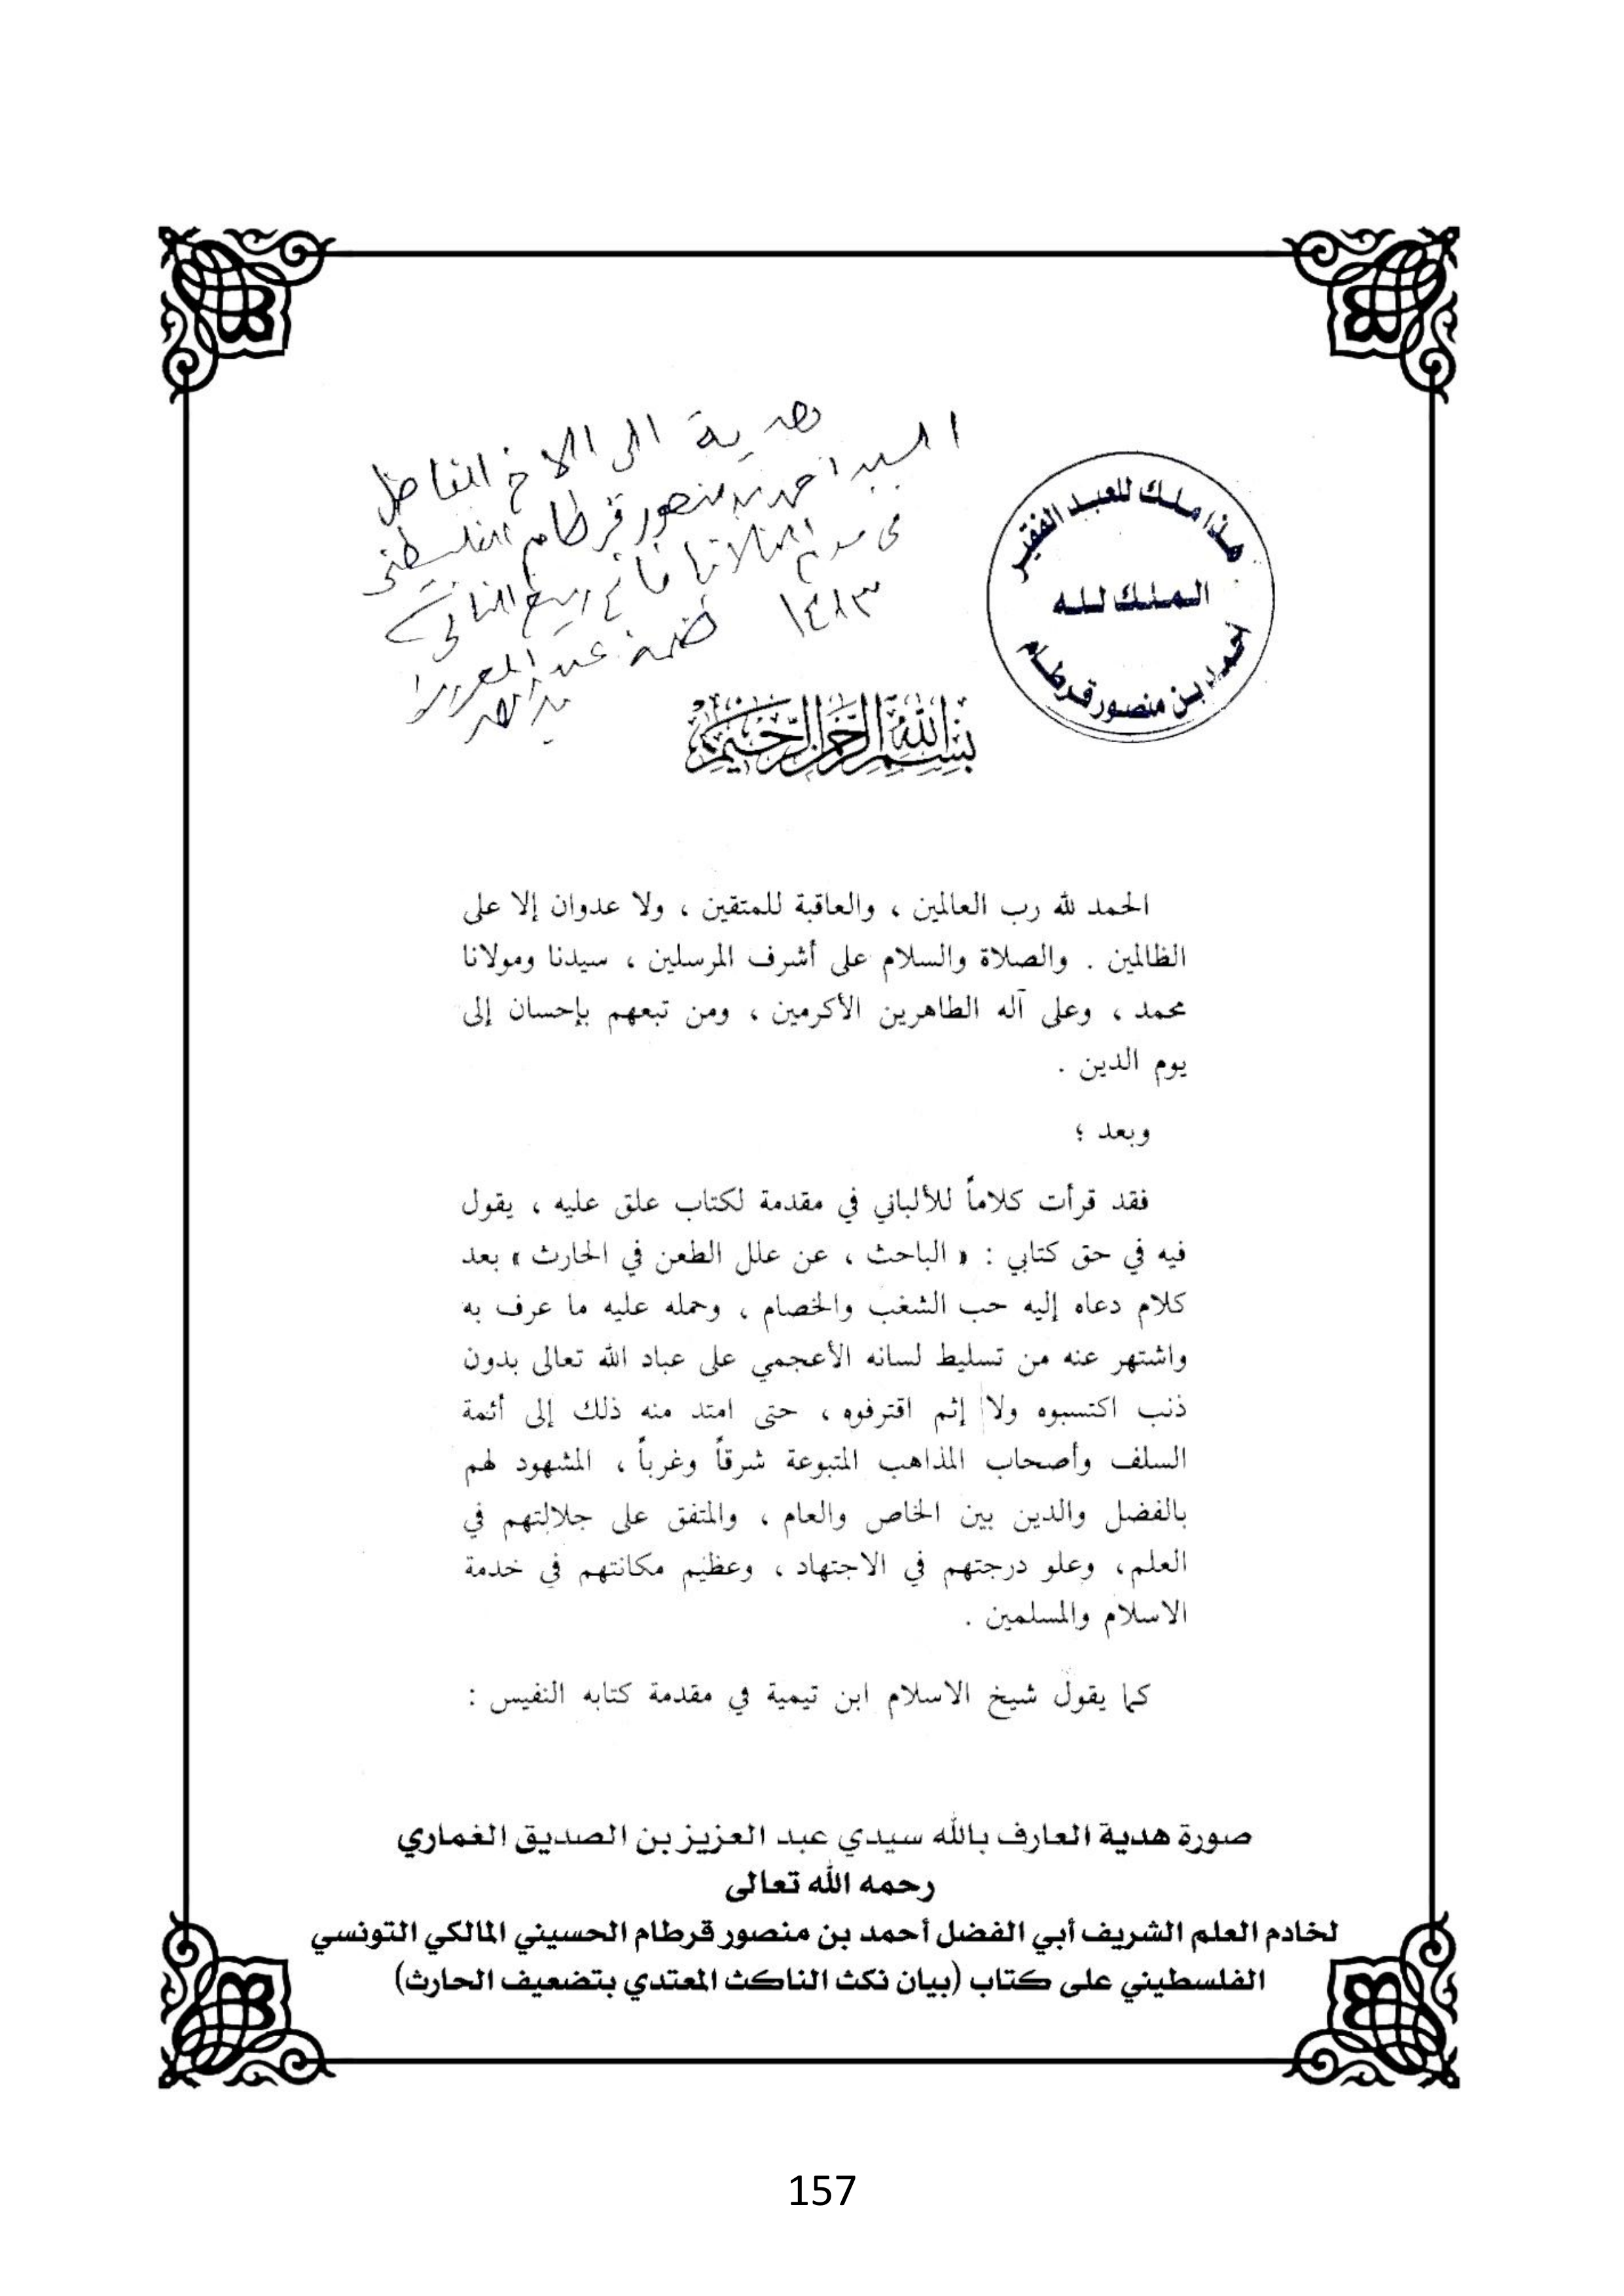 هدية الى الاخ الفاضل
السيد احمد بن منصور قرطام الفلسطيني
في يوم الثلاثا فاتح ربيع الثاني
١٤١٣
عبد العزيز
هذا ملك للعبد الفقير
الملك لله
أحمد بن منصور قرطام
بسم الله الرحمن الرحيم
الحمد لله رب العالمين ، والعاقبة للمتقين ، ولا عدوان إلا على
الظالمين . والصلاة والسلام على أشرف المرسلين ، سيدنا ومولانا
محمد ، وعلى آله الطاهرين الأكرمين ، ومن تبعهم بإحسان إلى
يوم الدين .
وبعد ؛
فقد قرأت كلاماً للألباني في مقدمة لكتاب علق عليه ، يقول
فيه في حق كتابي : « الباحث ، عن علل الطعن في الحارث » بعد
كلام دعاه إليه حب الشغب والخصام ، وحمله عليه ما عرف به
واشتهر عنه من تسليط لسانه الأعجمي على عباد الله تعالى بدون
ذنب اكتسبوه ولا إثم اقترفوه ، حتى امتد منه ذلك إلى أئمة
السلف وأصحاب المذاهب المتبوعة شرقاً وغرباً ، المشهود لهم
بالفضل والدين بين الخاص والعام ، والمتفق على جلالتهم في
العلم، وعلو درجتهم في الاجتهاد ، وعظيم مكانتهم في خدمة
الاسلام والمسلمين .
كما يقول شيخ الاسلام ابن تيمية في مقدمة كتابه النفيس :
صورة هدية العارف بالله سيدي عبد العزيز بن الصديق الغماري
رحمه الله تعالى
لخادم العلم الشريف أبي الفضل أحمد بن منصور قرطام الحسيني المالكي التونسي
الفلسطيني على كتاب (بيان نكث الناكث المعتدي بتضعيف الحارث)
157